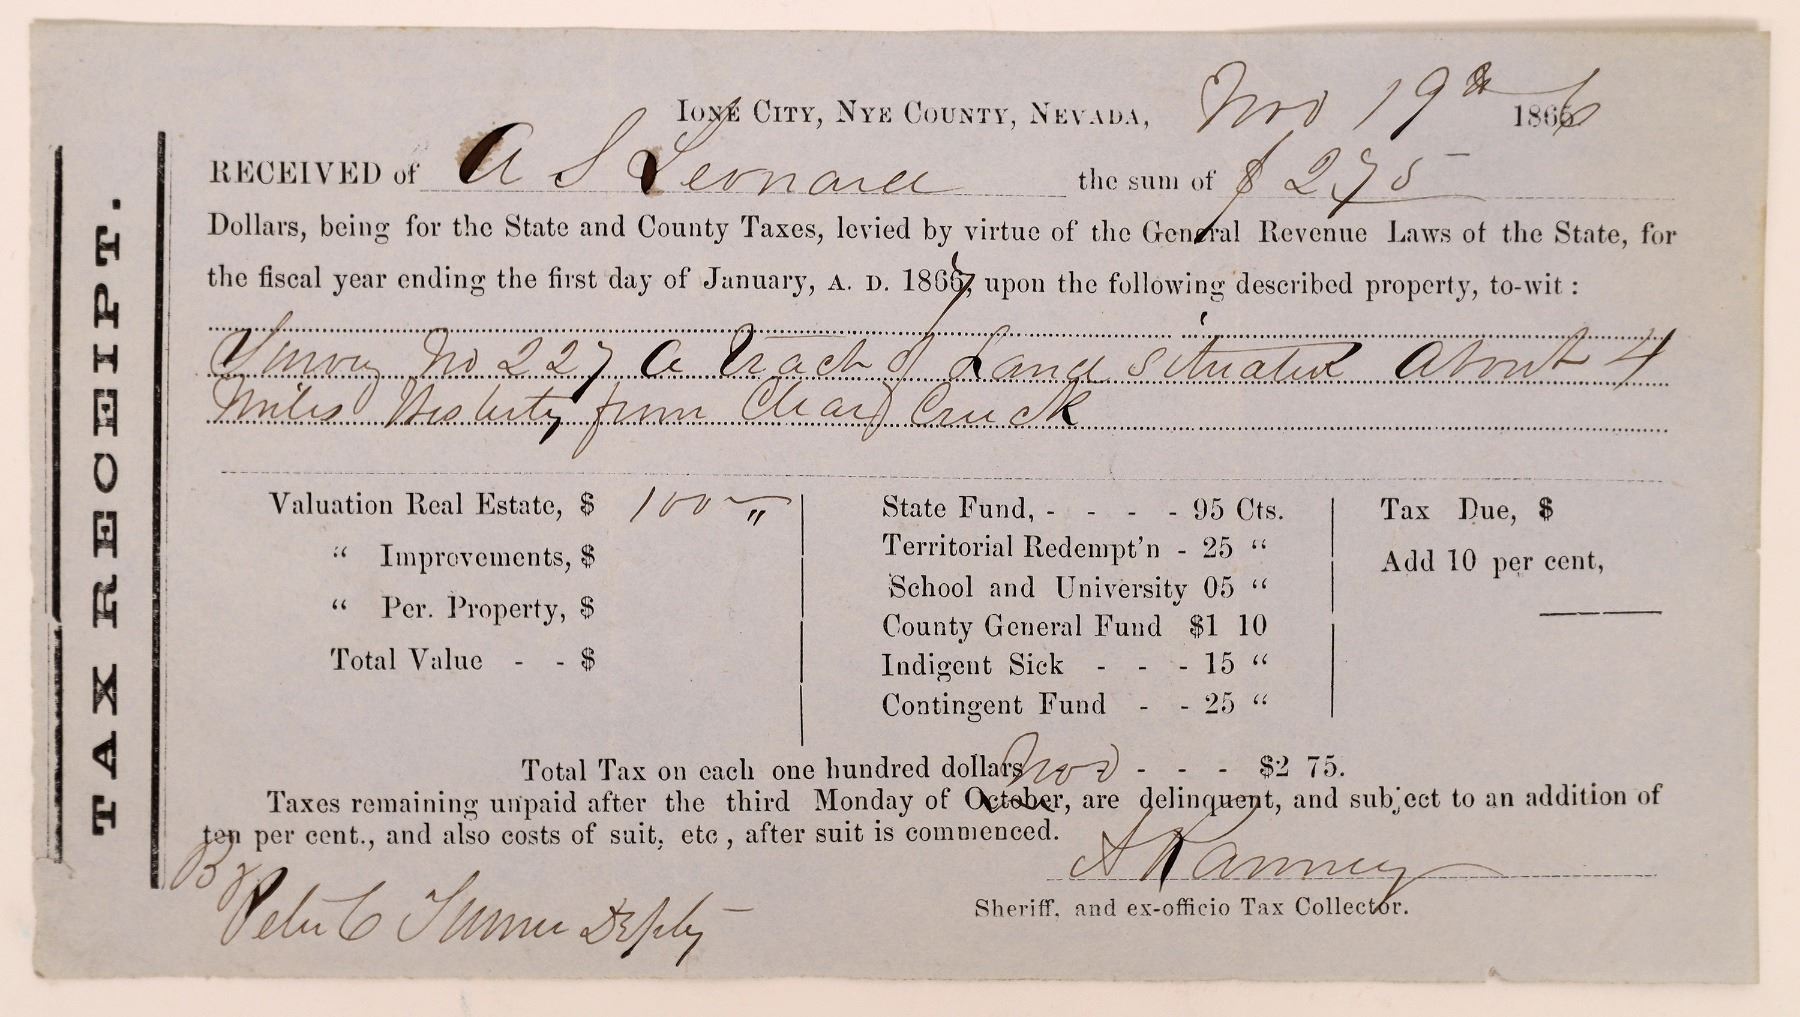 TAX RECEIPT.
IONE CITY, NYE COUNTY, NEVADA, Nov 19th 1866
RECEIVED of A S Leonard the sum of $ 275
Dollars, being for the State and County Taxes, levied by virtue of the General Revenue Laws of the State, for
the fiscal year ending the first day of January, A. D. 1867, upon the following described property, to-wit :
Survey No 227 A Track of Land situated About 4
Miles Westerly from Clear Creek
Valuation Real Estate, $ 100 "
" Improvements, $
" Per. Property, $
Total Value - - $
State Fund, - - - - 95 Cts.
Territorial Redempt'n - 25 "
School and University 05 "
County General Fund $1 10
Indigent Sick - - - 15 "
Contingent Fund - - 25 "
Tax Due, $
Add 10 per cent,
Total Tax on each one hundred dollars - - - $2 75.
Nov
Taxes remaining unpaid after the third Monday of October, are delinquent, and subject to an addition of
ten per cent., and also costs of suit, etc , after suit is commenced.
A Ranney
Sheriff, and ex-officio Tax Collector.
By
Peter C Turner Depty